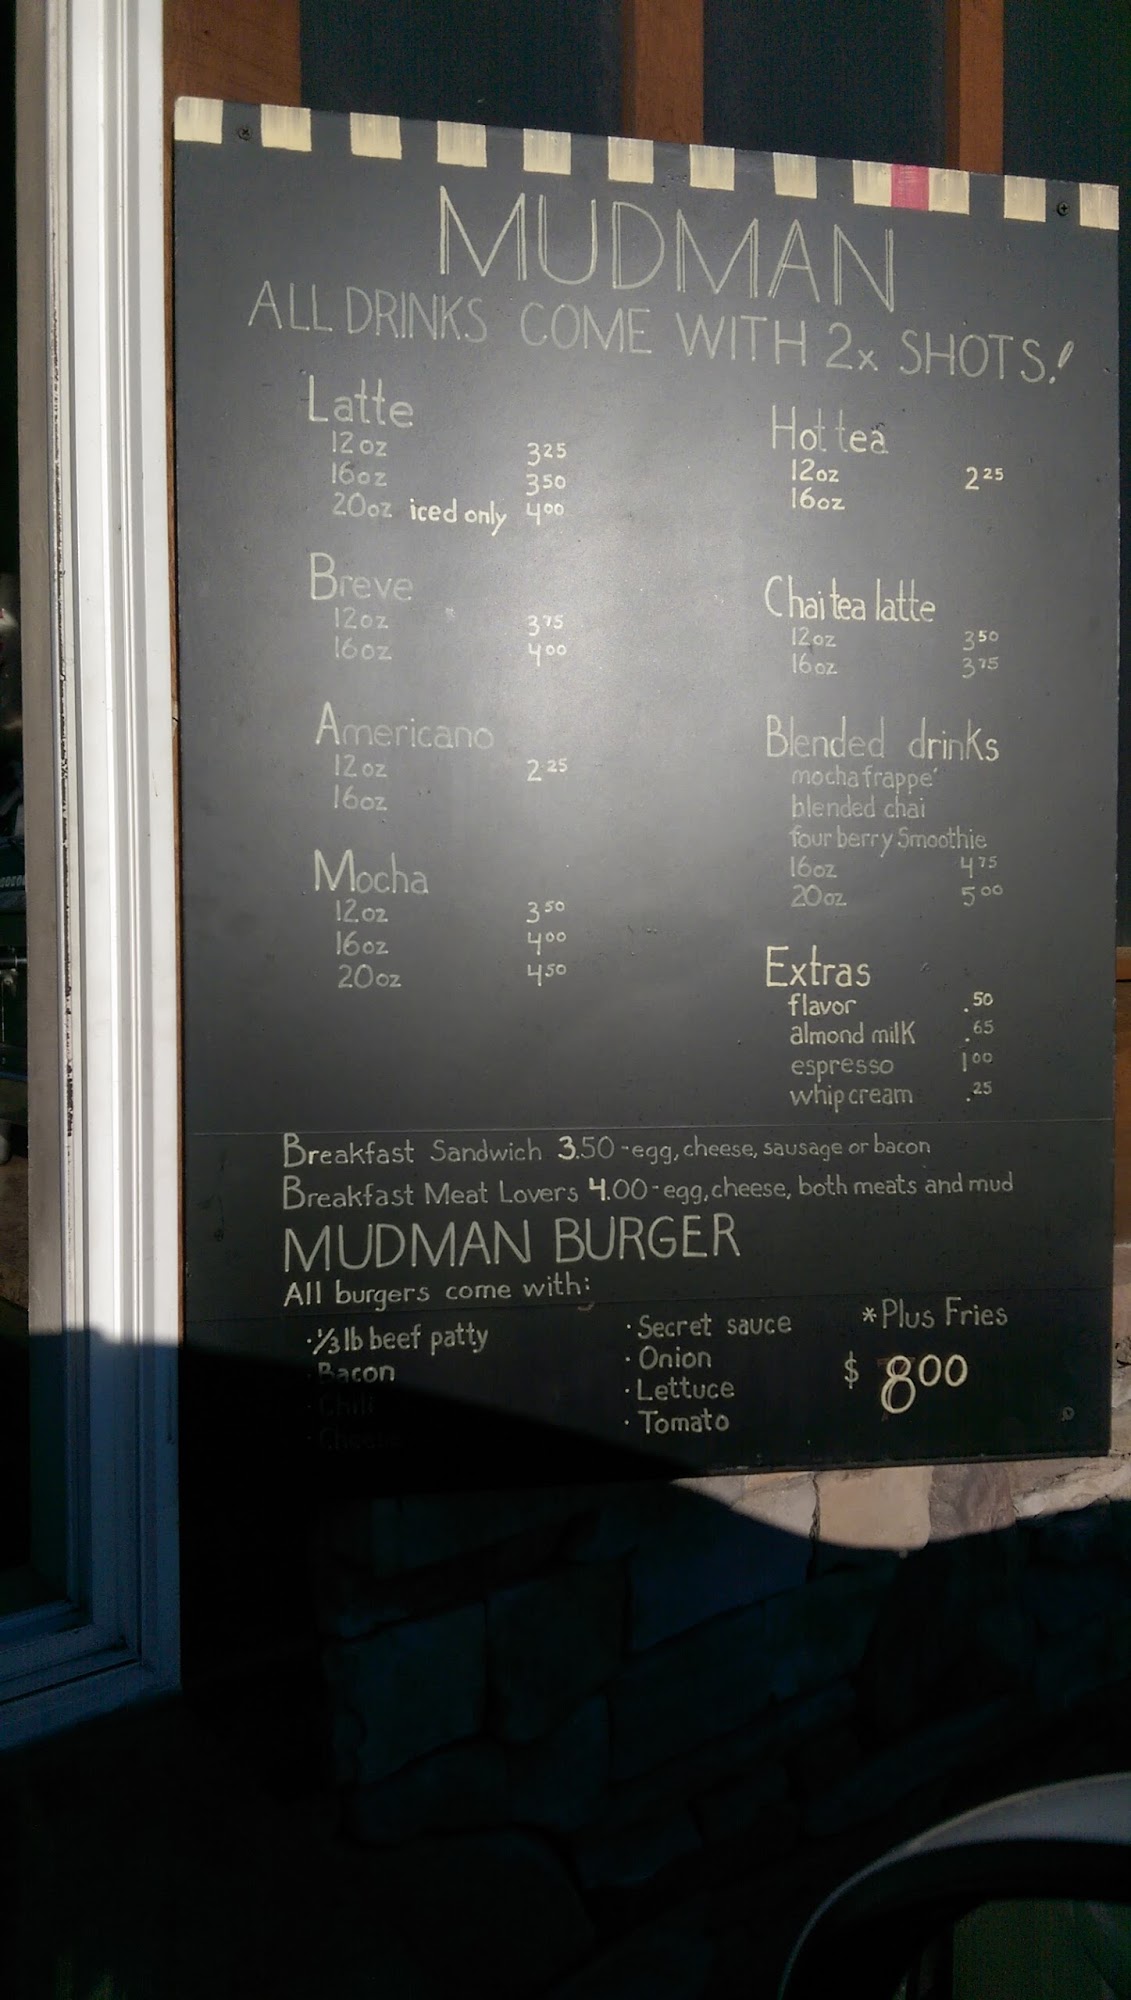 MUDMAN
ALL DRINKS COME WITH 2x SHOTS!
Latte
12oz 3.25
16oz 3.50
20oz iced only 4.00
Breve
12oz 3.75
16oz 4.00
Americano
12oz 2.25
16oz
Mocha
12oz 3.50
16oz 4.00
20oz 4.50
Hot tea
12oz 2.25
16oz
Chai tea latte
12oz 3.50
16oz 3.75
Blended drinks
mocha frappe'
blended chai
four berry Smoothie
16oz 4.75
20oz 5.00
Extras
flavor .50
almond milk .65
espresso 1.00
whip cream .25
Breakfast Sandwich 3.50 - egg, cheese, sausage or bacon
Breakfast Meat Lovers 4.00 - egg, cheese, both meats and mud
MUDMAN BURGER
All burgers come with:
· 1/3 lb beef patty
· Bacon
· Chili
· Cheese
· Secret sauce
· Onion
· Lettuce
· Tomato
*Plus Fries
$ 8.00